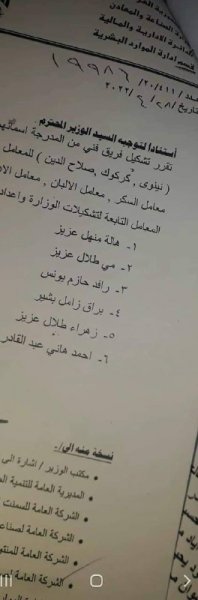 الصناعة والمعادن
الدائرة الادارية والمالية
قسم إدارة الموارد البشرية
١٩٩٨٦ / ٢٠/٤١١
تاريخ / ٢٨ / ٤ / ٢٠٢٢
أستناداً لتوجيه السيد الوزير المحترم
تقرر تشكيل فريق فني من المدرجة اسمائهم
( نينوى , كركوك , صلاح الدين ) للمعامل
معامل السكر , معامل الألبان , معامل
المعامل التابعة لتشكيلات الوزارة واعداد
١- هالة منهل عزيز
٢- مي طلال عزيز
٣- رافد حازم يونس
٤- براق زامل بشير
٥- زهراء طلال عزيز
٦- احمد هاني عبد القادر
نسخة منه الى/-
• مكتب الوزير / اشارة الى
• المديرية العامة للتنمية
• الشركة العامة للسمنت
• الشركة العامة لصناعة
• الشركة العامة
• الشركة العامة